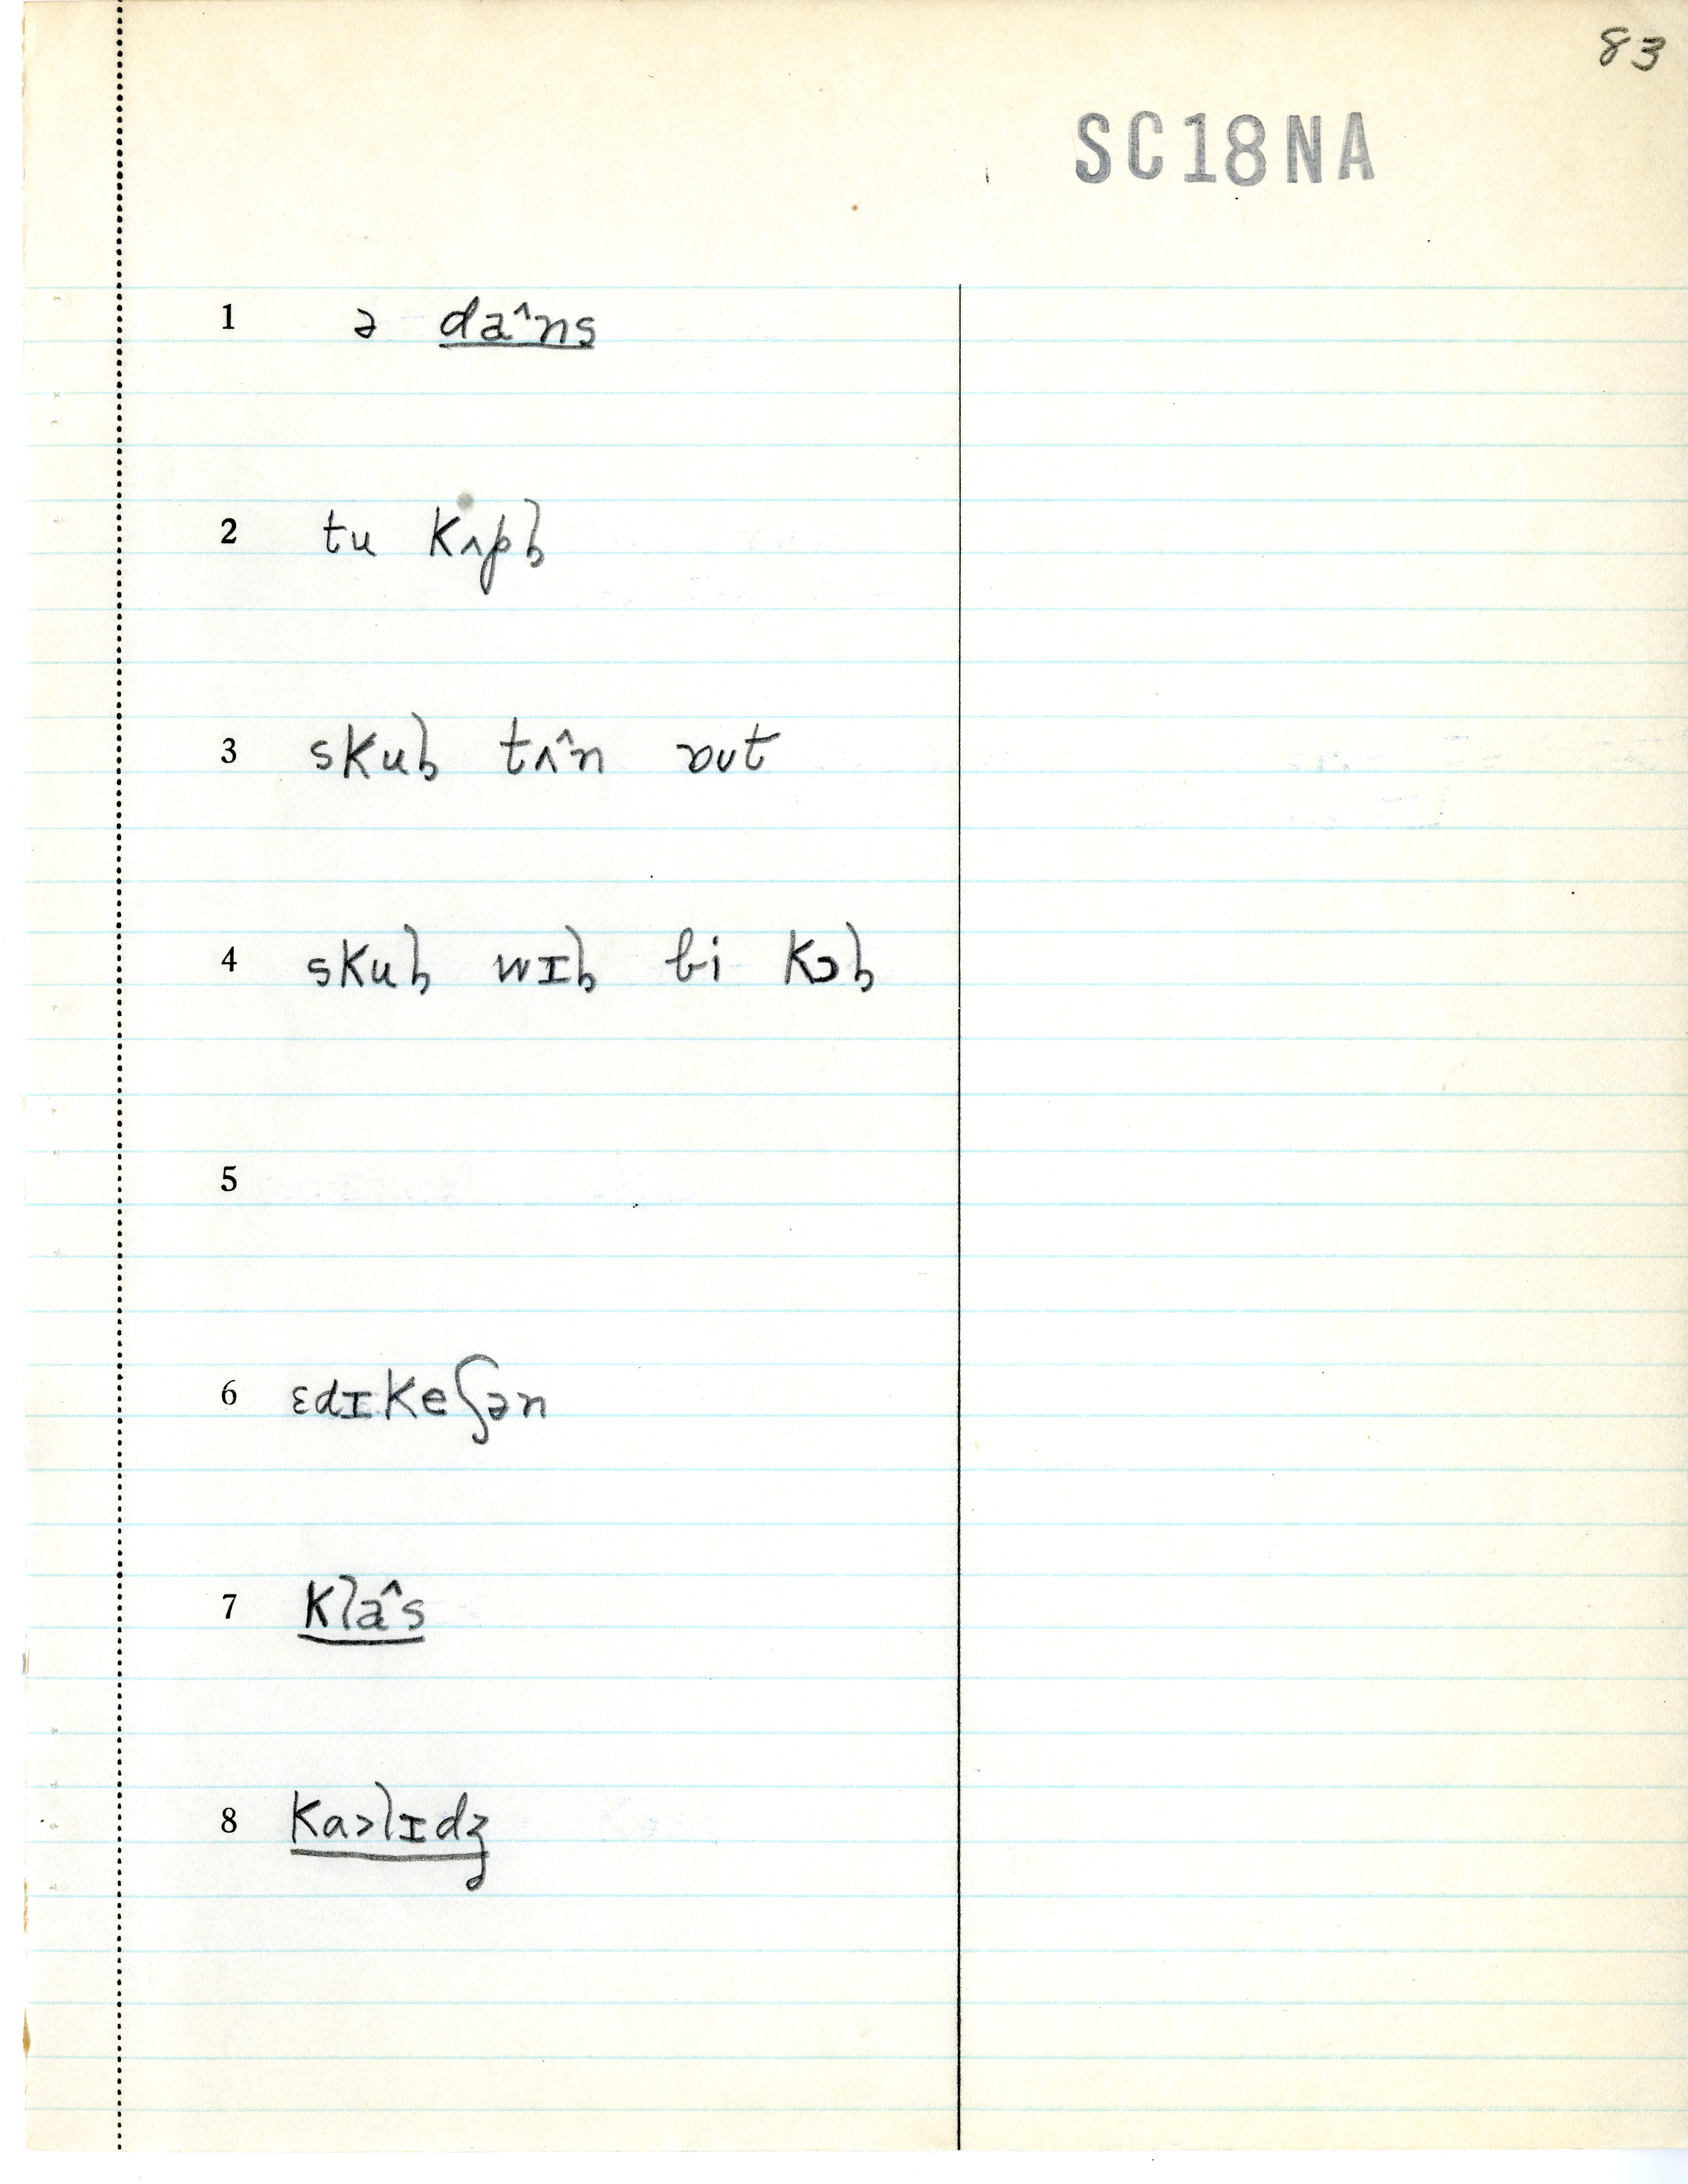 83
SC18NA
1 ə da^ns
2 tu kʌpɫ
3 skuɫ tʌ^n ɒʊt
4 skuɫ wɪɫ bi kɔɫ
5
6 ɛdɪkeʃən
7 kla^s
8 ka>lɪdʒ